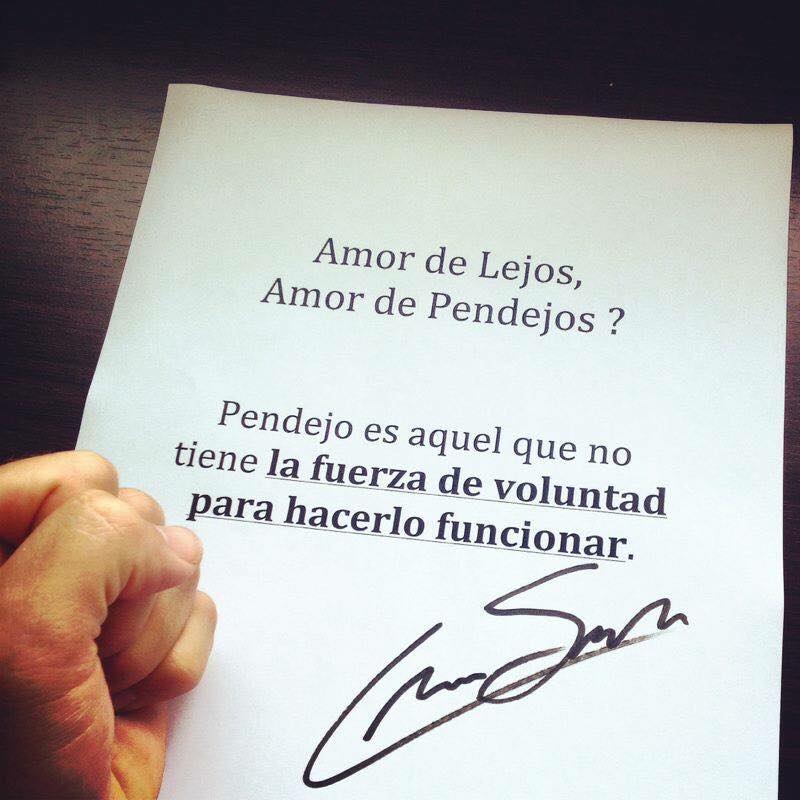 Amor de Lejos,
Amor de Pendejos ?
Pendejo es aquel que no
tiene la fuerza de voluntad
para hacerlo funcionar.